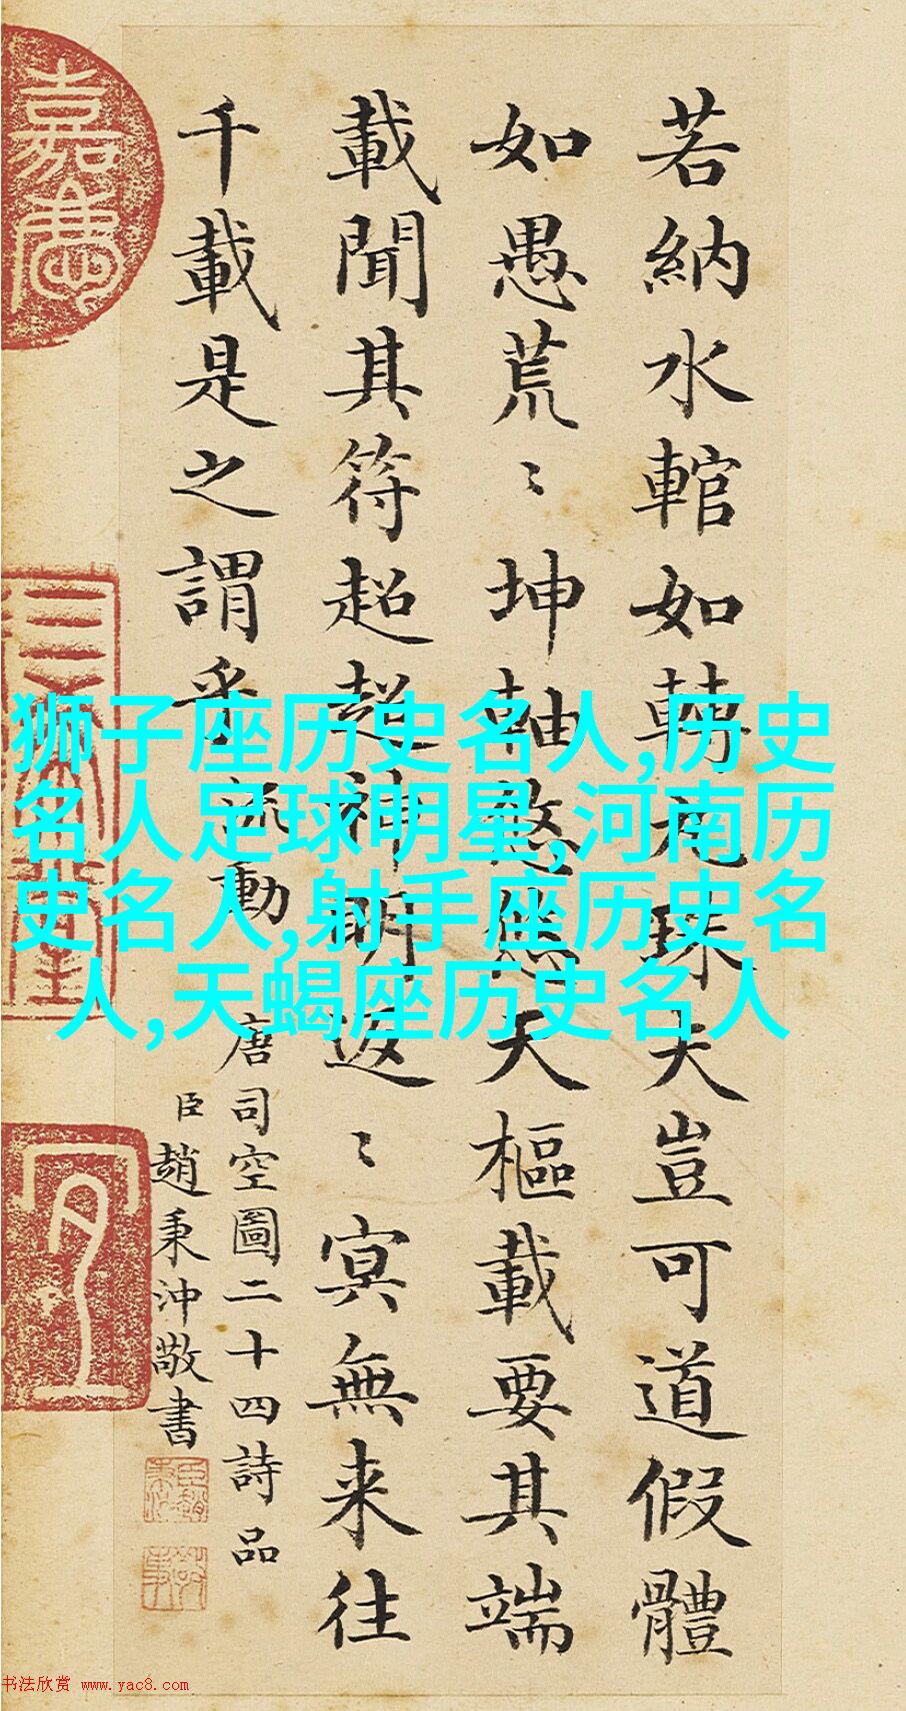 若納水輨如轉丸珠夫豈可道假體
如愚荒〻坤軸悠悠天樞載要其端
載聞其符超超神明返〻冥無来往
千載是之謂乎 流動
唐司空圖二十四詩品
臣趙秉沖敬書
嘉慶
狮子座历史名人,历史
名人足球明星,河南历
史名人,射手座历史名
人,天蝎座历史名人
书法欣赏 www.yac8.com